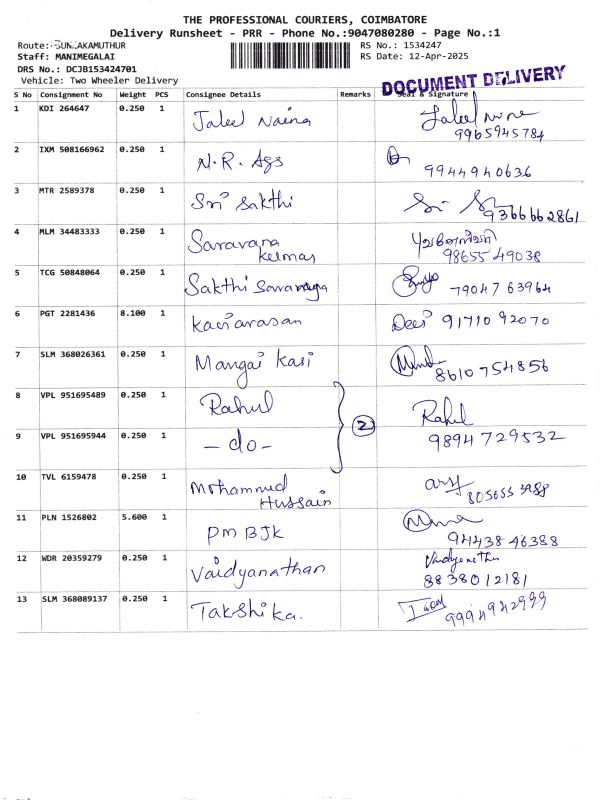 THE PROFESSIONAL COURIERS, COIMBATORE
Delivery Runsheet - PRR - Phone No.:9047080280 - Page No.:1
Route: SUNDAKAMUTHUR
RS No.: 1534247
Staff: MANIMEGALAI
RS Date: 12-Apr-2025
DRS No.: DCJB153424701
Vehicle: Two Wheeler Delivery
DOCUMENT DELIVERY
S No Consignment No Weight PCS Consignee Details Remarks Seal & Signature
1 KDI 264647 0.250 1 Jaleel Naina Jaleel
9965945784
2 IXM 508166962 0.250 1 N.R. Ags
9944940636
3 MTR 2589378 0.250 1 Sri Sakthi Sri
9366662861
4 MLM 34483333 0.250 1 Saravana Kumar
98655 49038
5 TCG 50848064 0.250 1 Sakthi Saravanya 79047 63964
6 PGT 2281436 8.100 1 Kaviarasan 91710 92070
7 SLM 368026361 0.250 1 Mangai Kasi
8610 754856
8 VPL 951695489 0.250 1 Rahul Rahul
2
9 VPL 951695944 0.250 1 -do- 9894 729532
10 TVL 6159478 0.250 1 Mohammed Hussain
11 PLN 1526802 5.600 1 PM BJK
94438 46388
12 WDR 20359279 0.250 1 Vaidyanathan Vaidyanathan
8838012181
13 SLM 368089137 0.250 1 Takshika. 9994942999